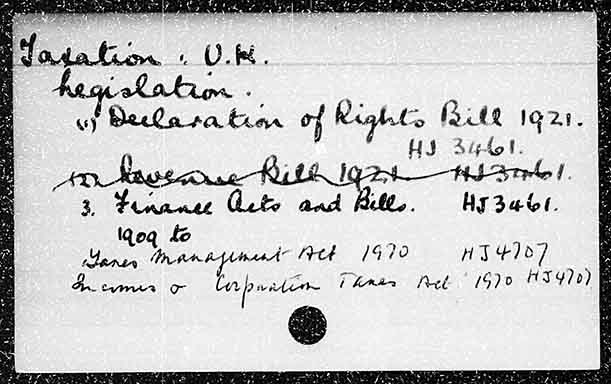 Taxation : U.K.
Legislation.
(1) Declaration of Rights Bill 1921.
HJ 3461.
(2) Revenue Bill 1921 HJ3461.
3. Finance Acts and Bills. HJ3461.
1909 to
Taxes Management Act 1970 HJ4707
Incomes & Corporation Taxes Act 1970 HJ4707